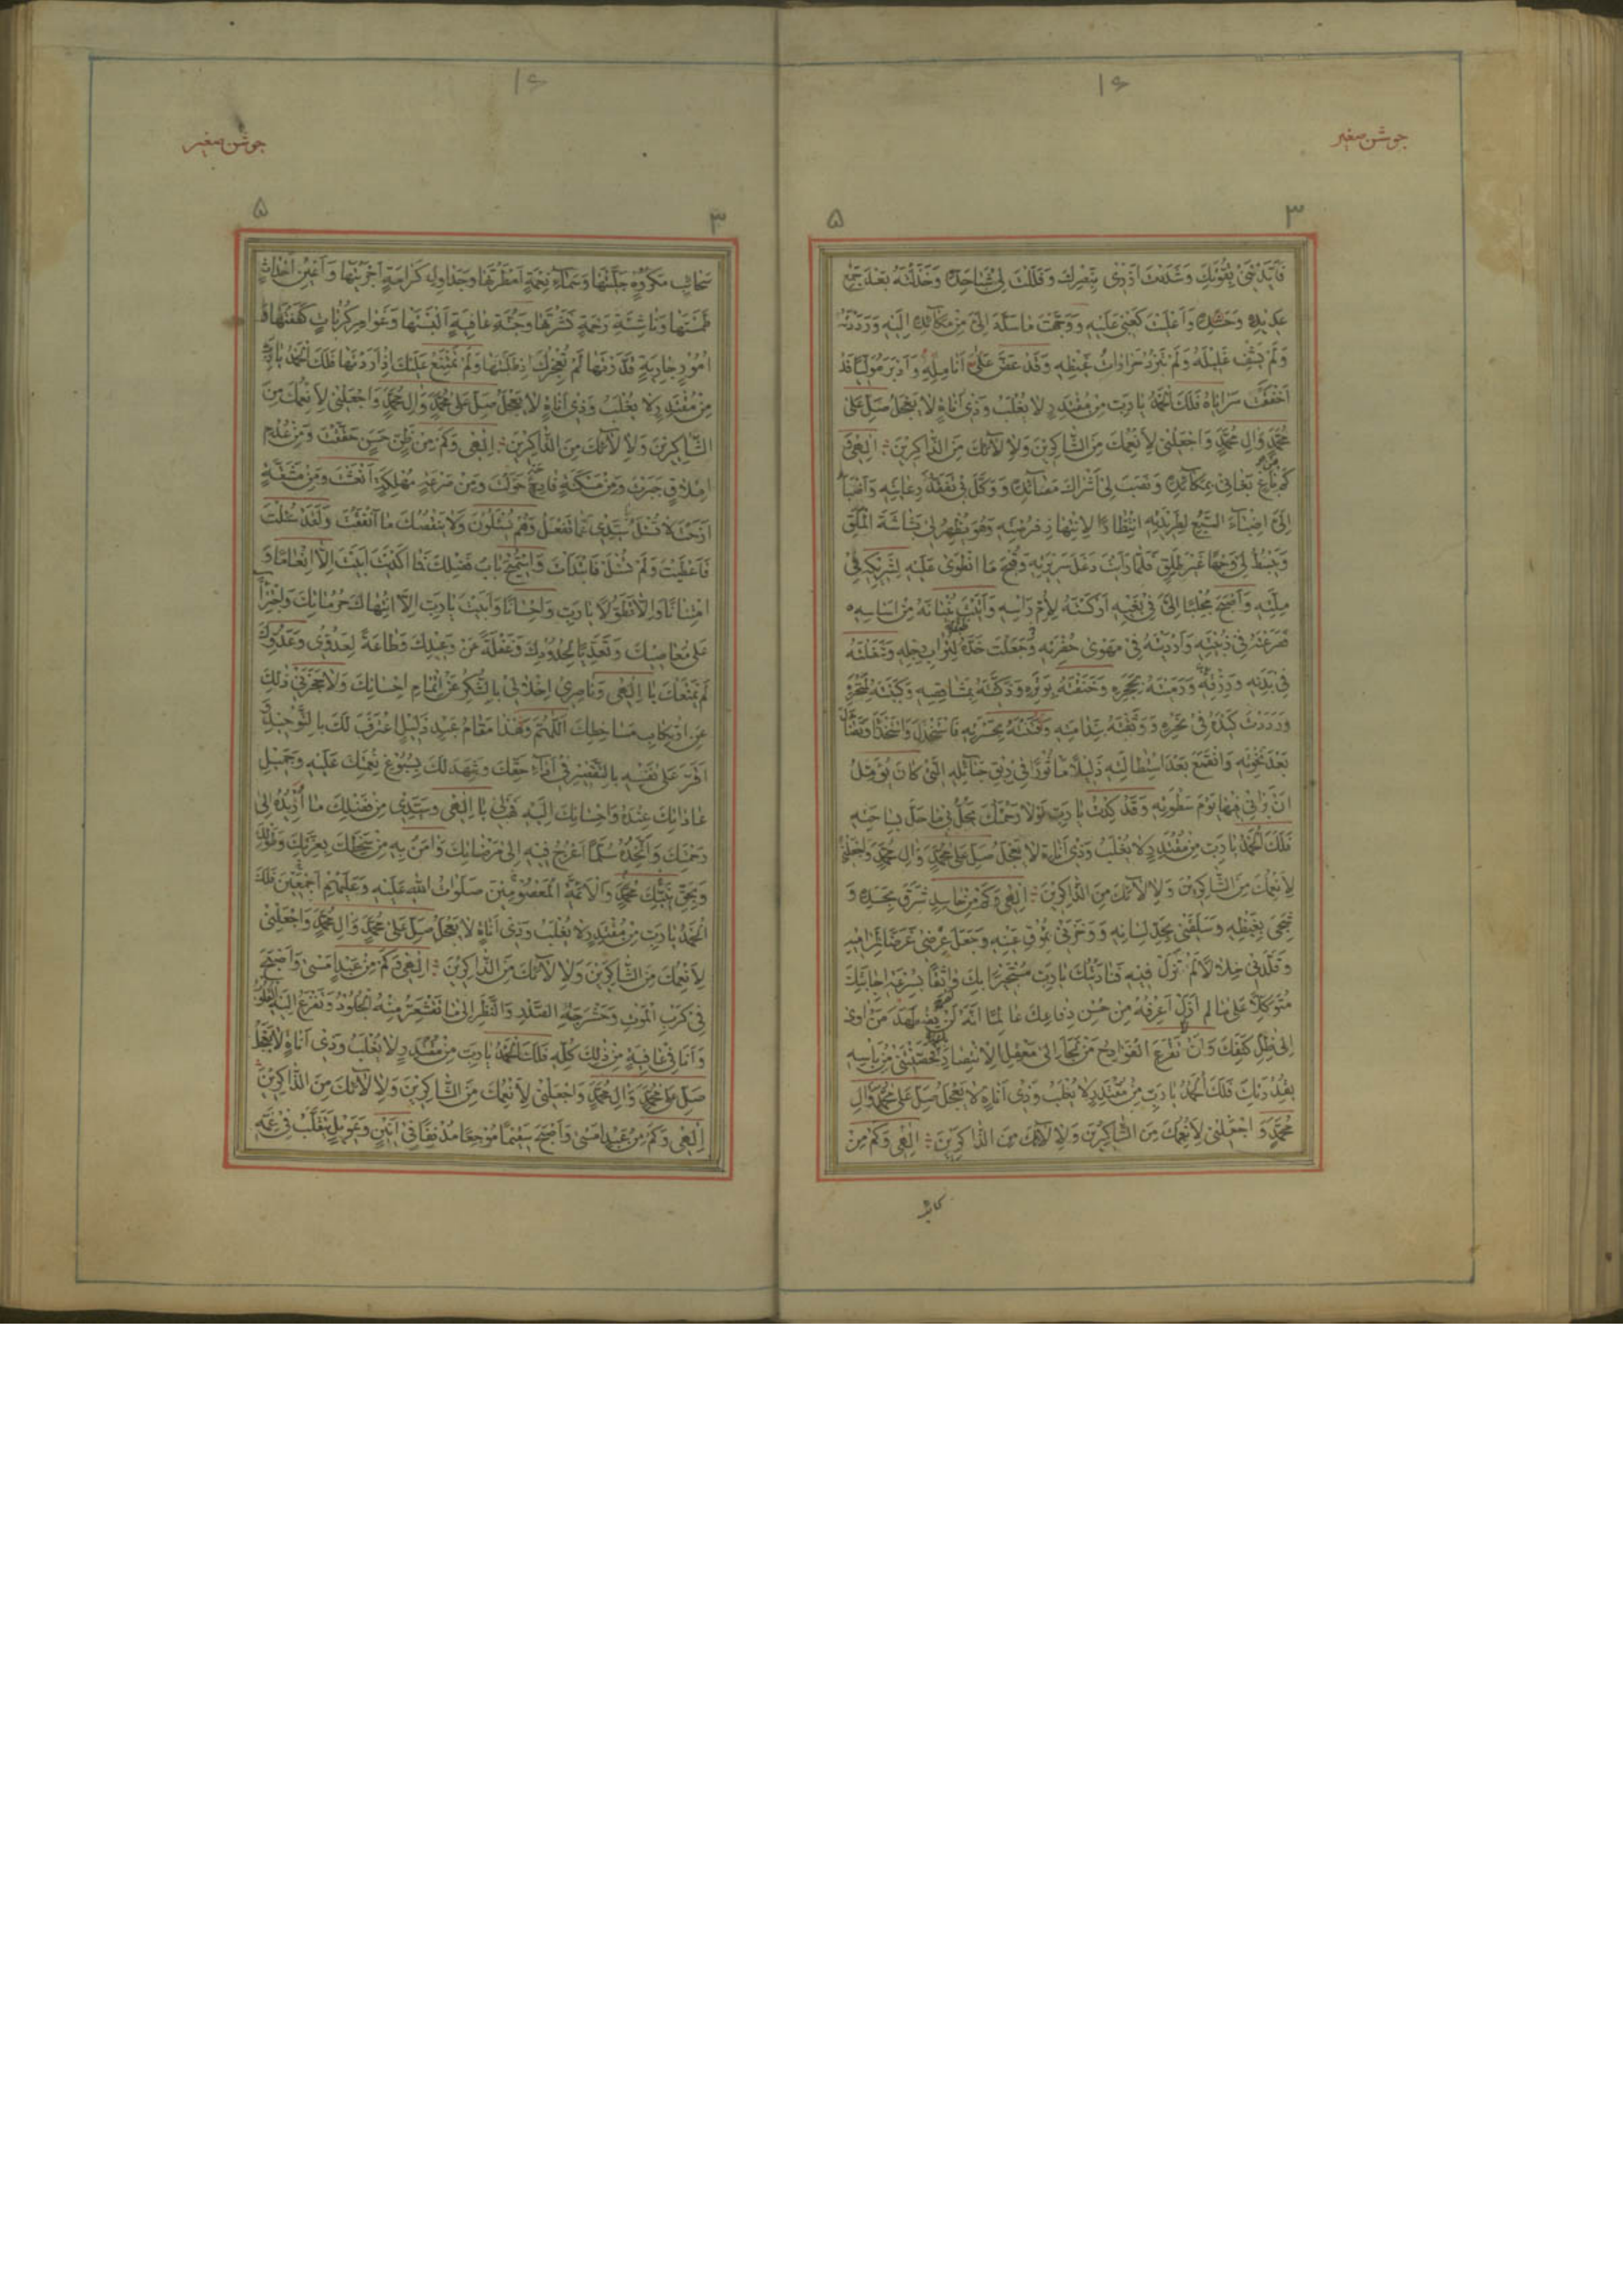 ۱۶
جوشن صغیر
۳
۵
فَاَیَّدْتَنی بِقُوَّتِكَ وَشَدَدْتَ اَزْری بِنَصْرِكَ وَفَلَلْتَ لی شَباحَدِّهِ وَخَذَلْتَهُ بَعْدَ جَمْعِ
عَدیدِهِ وَحَشْدِهِ وَاَعْلَیْتَ كَعْبی عَلَیْهِ وَوَجَّهْتَ ما سَدَّدَ اِلَیَّ مِنْ مَكآئِدِهِ اِلَیْهِ وَرَدَدْتَهُ
وَلَمْ یَشْفِ غَلیلَهُ وَلَمْ تَبْرُدْ حَزازاتُ غَیْظِهِ وَقَدْ عَضَّ عَلَیَّ اَنامِلَهُ وَاَدْبَرَ مُوَلِّیًا قَدْ
اَخْفَقَتْ سَرایاهُ فَلَكَ الْحَمْدُ یا رَبِّ مِنْ مُقْتَدِرٍ لا یُغْلَبُ وَذی اَناةٍ لا یَعْجَلُ صَلِّ عَلی
مُحَمَّدٍ وَالِ مُحَمَّدٍ وَاجْعَلْنی لِاَنْعُمِكَ مِنَ الشّاكِرینَ وَلِالآئِكَ مِنَ الذّاكِرینَ اِلهی وَ
كَمْ مِنْ باغٍ بَغانی بِمَكآئِدِهِ وَنَصَبَ لی اَشْراكَ مَصآئِدِهِ وَوَكَّلَ بی تَفَقُّدَ رِعایَتِهِ وَاَضْبَأَ
اِلَیَّ اِضْبآءَ السَّبُعِ لِطَریدَتِهِ انْتِظارًا لِانْتِهازِ فُرْصَتِهِ وَهُوَ یُظْهِرُ لی بَشاشَةَ الْمَلَقِ
وَیَبْسُطُ لی وَجْهًا غَیْرَ طَلِقٍ فَلَمّا رَاَیْتَ دَغَلَ سَریرَتِهِ وَقُبْحَ مَا انْطَوی عَلَیْهِ لِشَریكِهِ فی
مِلَّتِهِ وَاَصْبَحَ مُجْلِبًا اِلَیَّ فی بَغْیِهِ اَرْكَسْتَهُ لِاُمِّ رَاْسِهِ وَاَتَیْتَ بُنْیانَهُ مِنْ اَساسِهِ
فَصَرَعْتَهُ فی زُبْیَتِهِ وَاَرْدَیْتَهُ فی مَهْوی حُفْرَتِهِ وَجَعَلْتَ خَدَّهُ لِتُرابِ رِجْلِهِ وَشَغَلْتَهُ
فی بَدَنِهِ وَرِزْقِهِ وَرَمَیْتَهُ بِحَجَرِهِ وَخَنَقْتَهُ بِوَتَرِهِ وَذَكَّیْتَهُ بِمَشاقِصِهِ وَكَبَبْتَهُ لِمَنْخَرِهِ
وَرَدَدْتَ كَیْدَهُ فی نَحْرِهِ وَوَثَّقْتَهُ بِنَدامَتِهِ وَفَتَنْتَهُ بِحَسْرَتِهِ فَاسْتَخْذَلَ وَاسْتَخْذَأَ وَتَضآئَلَ
بَعْدَ نَخْوَتِهِ وَانْقَمَعَ بَعْدَ اسْتِطالَتِهِ ذَلیلاً مَاْسُورًا فی رِبْقِ حَبآئِلِهِ الَّتی كانَ یُؤَمِّلُ
اَنْ یَرانی فیها یَوْمَ سَطْوَتِهِ وَقَدْ كِدْتُ یا رَبِّ لَوْلا رَحْمَتُكَ یَحُلُّ بی ما حَلَّ بِساحَتِهِ
فَلَكَ الْحَمْدُ یا رَبِّ مِنْ مُقْتَدِرٍ لا یُغْلَبُ وَذی اَناةٍ لا یَعْجَلُ صَلِّ عَلی مُحَمَّدٍ وَالِ مُحَمَّدٍ وَاجْعَلْنی
لِاَنْعُمِكَ مِنَ الشّاكِرینَ وَلِالآئِكَ مِنَ الذّاكِرینَ اِلهی وَكَمْ مِنْ حاسِدٍ شَرِقَ بِحَسَدِهِ وَ
شَجِیَ بِغَیْظِهِ وَسَلَقَنی بِحَدِّ لِسانِهِ وَوَخَزَنی بِمُوقِ عَیْنِهِ وَجَعَلَ عِرْضی غَرَضًا لِمَرامیهِ
وَقَلَّدَنی خِلالاً لَمْ تَزَلْ فیهِ فَنادَیْتُكَ یا رَبِّ مُسْتَجیرًا بِكَ واثِقًا بِسُرْعَةِ اِجابَتِكَ
مُتَوَكِّلاً عَلی ما لَمْ اَزَلْ اَعْرِفُهُ مِنْ حُسْنِ دِفاعِكَ عالِمًا اَنَّهُ لَنْ یُضْطَهَدَ مَنْ اَوی
اِلی ظِلِّ كَنَفِكَ وَاَنْ تَقْرَعَ الْفَوادِحُ مَنْ لَجَأَ اِلی مَعْقِلِ الْاِنْتِصارِ بِكَ فَحَصَّنْتَنی مِنْ بَاْسِهِ
بِقُدْرَتِكَ فَلَكَ الْحَمْدُ یا رَبِّ مِنْ مُقْتَدِرٍ لا یُغْلَبُ وَذی اَناةٍ لا یَعْجَلُ صَلِّ عَلی مُحَمَّدٍ وَالِ
مُحَمَّدٍ وَاجْعَلْنی لِاَنْعُمِكَ مِنَ الشّاكِرینَ وَلِالآئِكَ مِنَ الذّاكِرینَ اِلهی وَكَمْ مِنْ
۱۶
جوشن صغیر
۳
۵
سَحائِبِ مَكْرُوهٍ جَلَّیْتَها وَسَمآءِ نِعْمَةٍ اَمْطَرْتَها وَجَداوِلِ كَرامَةٍ اَجْرَیْتَها وَاَعْیُنِ اَحْداثٍ
طَمَسْتَها وَناشِئَةِ رَحْمَةٍ نَشَرْتَها وَجُنَّةِ عافِیَةٍ اَلْبَسْتَها وَغَوامِرِ كُرُباتٍ كَشَفْتَها وَ
اُمُورٍ جارِیَةٍ قَدَّرْتَها لَمْ تُعْجِزْكَ اِذْ طَلَبْتَها وَلَمْ تَمْتَنِعْ عَلَیْكَ اِذْ اَرَدْتَها فَلَكَ الْحَمْدُ یا رَبِّ
مِنْ مُقْتَدِرٍ لا یُغْلَبُ وَذی اَناةٍ لا یَعْجَلُ صَلِّ عَلی مُحَمَّدٍ وَالِ مُحَمَّدٍ وَاجْعَلْنی لِاَنْعُمِكَ مِنَ
الشّاكِرینَ وَلِالآئِكَ مِنَ الذّاكِرینَ اِلهی وَكَمْ مِنْ ظَنٍّ حَسَنٍ حَقَّقْتَ وَمِنْ عُدْمِ
اِمْلاقٍ جَبَرْتَ وَمِنْ مَسْكَنَةٍ فادِحَةٍ حَوَّلْتَ وَمِنْ صَرْعَةٍ مُهْلِكَةٍ اَنْعَشْتَ وَمِنْ مَشَقَّةٍ
اَرَحْتَ لا تُسْئَلُ سَیِّدی عَمّا تَفْعَلُ وَهُمْ یُسْئَلُونَ وَلا یَنْقُصُكَ ما اَنْفَقْتَ وَلَقَدْ سُئِلْتَ
فَاَعْطَیْتَ وَلَمْ تُسْئَلْ فَابْتَدَاْتَ وَاسْتُمیحَ بابُ فَضْلِكَ فَما اَكْدَیْتَ اَبَیْتَ اِلاّ اِنْعامًا وَ
امْتِنانًا وَاِلاّ تَطَوُّلاً یا رَبِّ وَاِحْسانًا وَاَبَیْتُ یا رَبِّ اِلاَّ انْتِهاكَ حُرُماتِكَ وَاجْتِرآءً
عَلی مَعاصیكَ وَتَعَدِّیًا لِحُدُودِكَ وَغَفْلَةً عَنْ وَعیدِكَ وَطاعَةً لِعَدُوّی وَعَدُوِّكَ
لَمْ یَمْنَعْكَ یا اِلهی وَناصِری اِخْلالی بِالشُّكْرِ عَنْ اِتْمامِ اِحْسانِكَ وَلا حَجَزَنی ذلِكَ
عَنِ ارْتِكابِ مَساخِطِكَ اَللّهُمَّ وَهذا مَقامُ عَبْدٍ ذَلیلٍ اعْتَرَفَ لَكَ بِالتَّوْحیدِ وَ
اَقَرَّ عَلی نَفْسِهِ بِالتَّقْصیرِ فی اَدآءِ حَقِّكَ وَشَهِدَ لَكَ بِسُبُوغِ نِعْمَتِكَ عَلَیْهِ وَجَمیلِ
عاداتِكَ عِنْدَهُ وَاِحْسانِكَ اِلَیْهِ فَهَبْ لی یا اِلهی وَسَیِّدی مِنْ فَضْلِكَ ما اُریدُهُ اِلی
رَحْمَتِكَ وَاَتَّخِذُهُ سُلَّمًا اَعْرُجُ فیهِ اِلی مَرْضاتِكَ وَامَنُ بِهِ مِنْ سَخَطِكَ بِعِزَّتِكَ وَطَوْلِكَ
وَبِحَقِّ نَبِیِّكَ مُحَمَّدٍ وَالْاَئِمَّةِ الْمَعْصُومینَ صَلَواتُ اللهِ عَلَیْهِ وَعَلَیْهِمْ اَجْمَعینَ فَلَكَ
الْحَمْدُ یا رَبِّ مِنْ مُقْتَدِرٍ لا یُغْلَبُ وَذی اَناةٍ لا یَعْجَلُ صَلِّ عَلی مُحَمَّدٍ وَالِ مُحَمَّدٍ وَاجْعَلْنی
لِاَنْعُمِكَ مِنَ الشّاكِرینَ وَلِالآئِكَ مِنَ الذّاكِرینَ اِلهی وَكَمْ مِنْ عَبْدٍ اَمْسی وَاَصْبَحَ
فی كَرْبِ الْمَوْتِ وَحَشْرَجَةِ الصَّدْرِ وَالنَّظَرِ اِلی ما تَقْشَعِرُّ مِنْهُ الْجُلُودُ وَتَفْزَعُ اِلَیْهِ الْقُلُوبُ
وَاَنَا فی عافِیَةٍ مِنْ ذلِكَ كُلِّهِ فَلَكَ الْحَمْدُ یا رَبِّ مِنْ مُقْتَدِرٍ لا یُغْلَبُ وَذی اَناةٍ لا یَعْجَلُ
صَلِّ عَلی مُحَمَّدٍ وَالِ مُحَمَّدٍ وَاجْعَلْنی لِاَنْعُمِكَ مِنَ الشّاكِرینَ وَلِالآئِكَ مِنَ الذّاكِرینَ
اِلهی وَكَمْ مِنْ عَبْدٍ اَمْسی وَاَصْبَحَ سَقیمًا مُوجَعًا مُدْنِفًا فی اَنینٍ وَعَویلٍ یَتَقَلَّبُ فی غَمِّهِ